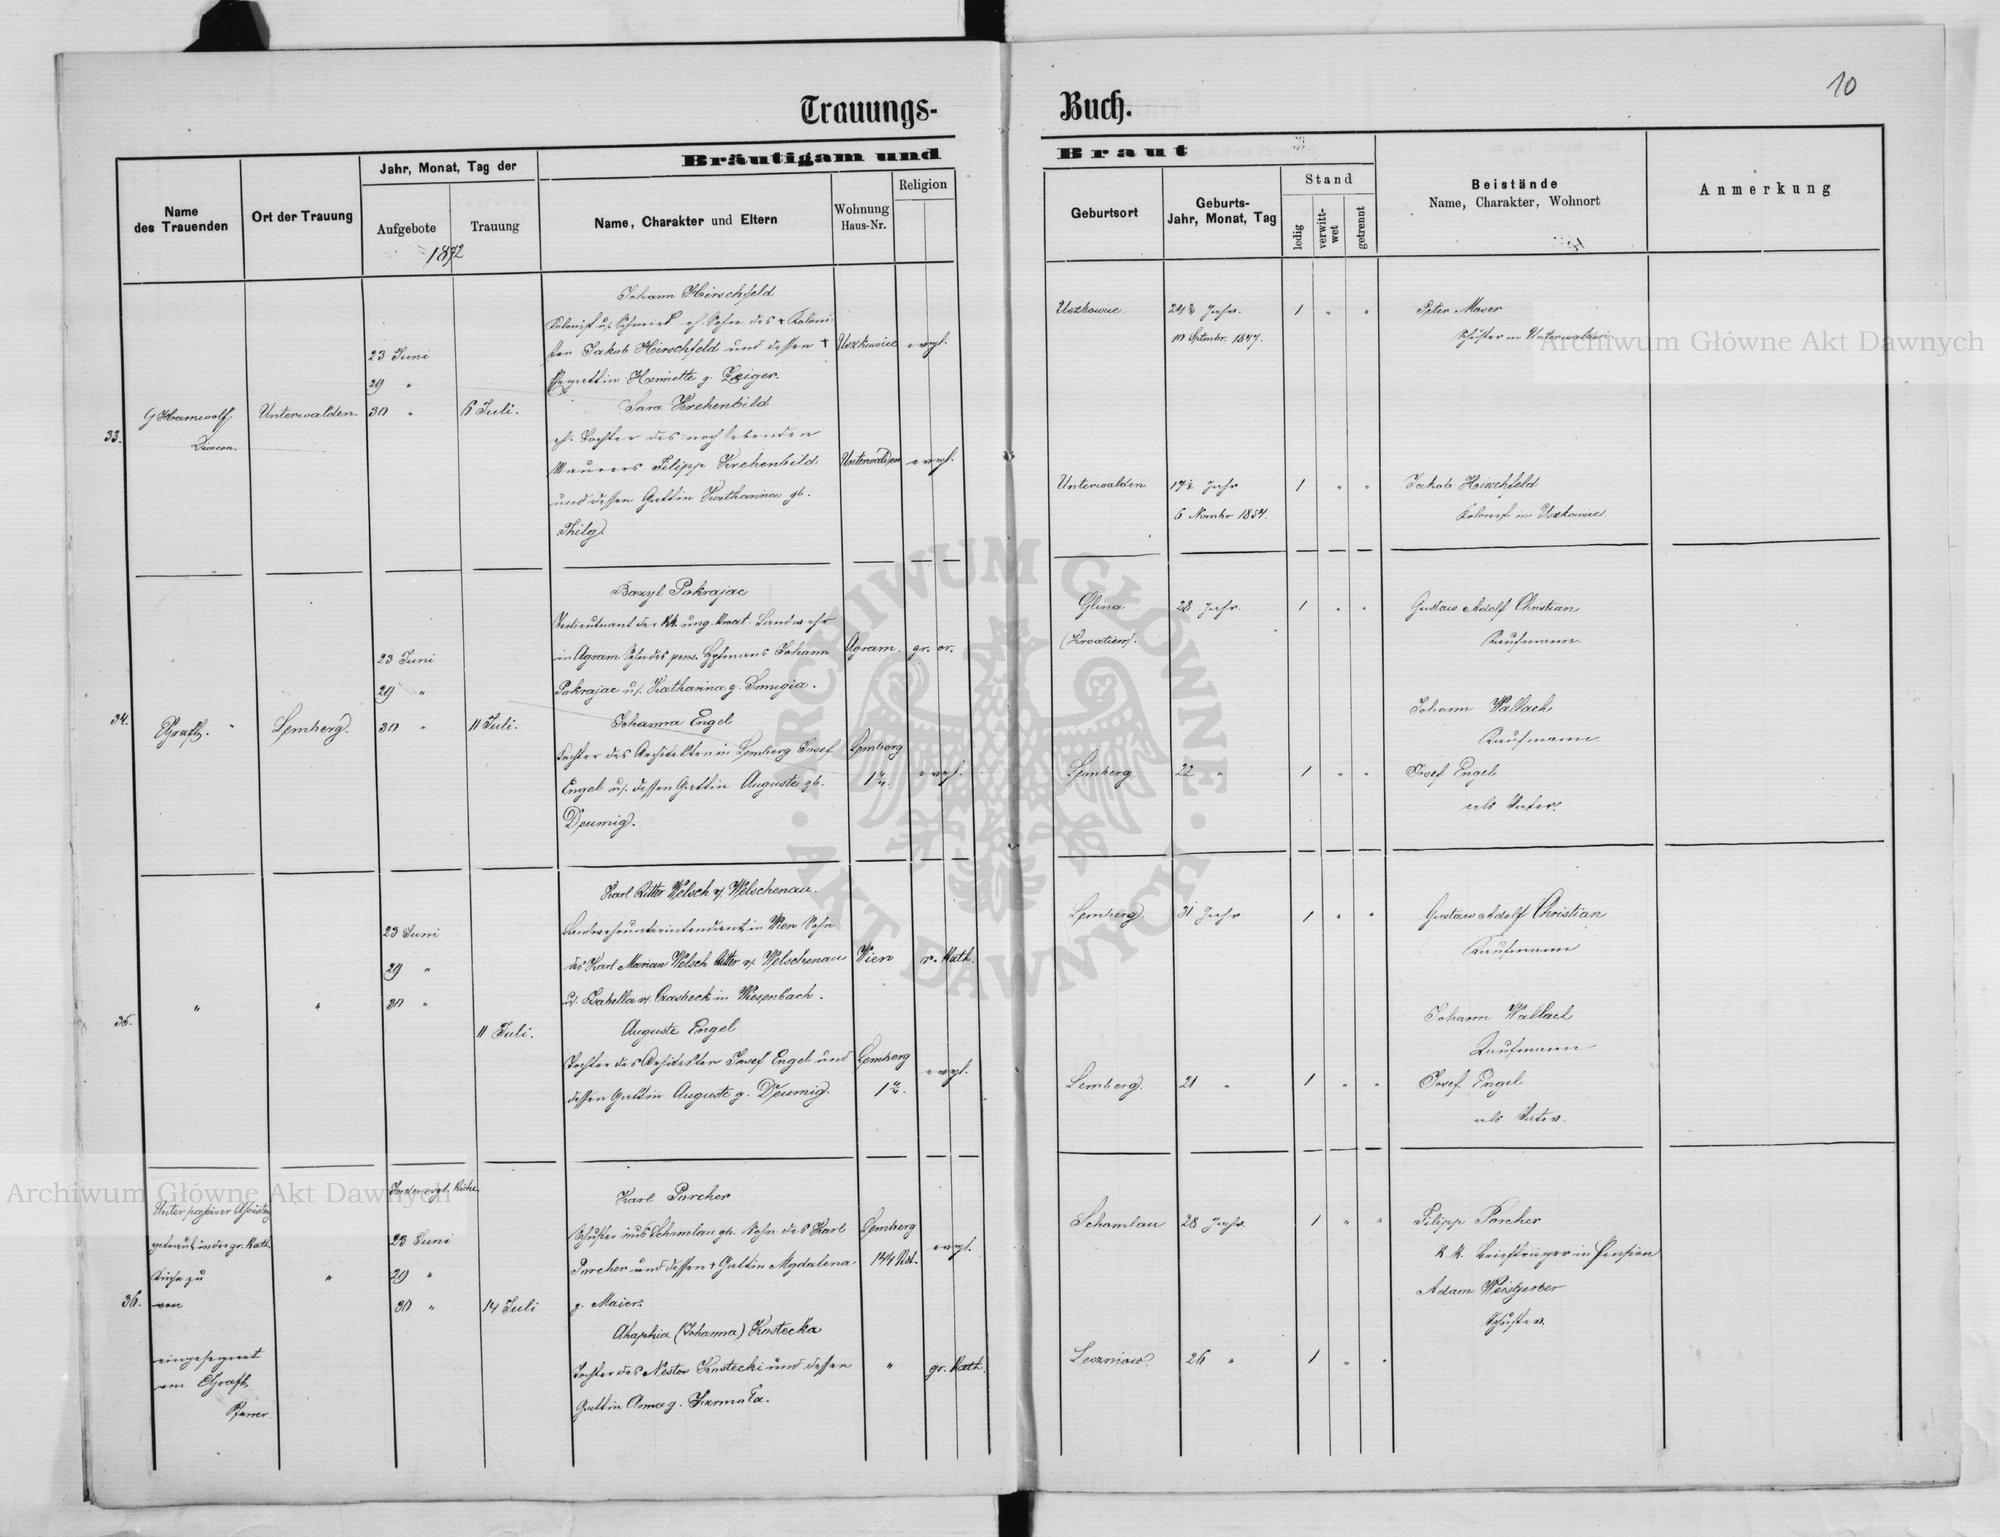 10
Trauungs- Buch.
Bräutigam und Braut
Name des Trauenden
Ort der Trauung
Jahr, Monat, Tag der
Aufgebote
Trauung
1872
Name, Charakter und Eltern
Wohnung Haus-Nr.
Religion
Geburtsort
Geburts-Jahr, Monat, Tag
Stand
ledig
verwittwet
getrennt
Beistände
Name, Charakter, Wohnort
Anmerkung
33.
Unterwalden.
23 Juni
29 "
30 "
6 Juli.
Johann Hirschfeld
Kolonist u. Schmied eh. Sohn des † Koloni-
sten Jakob Hirschfeld und dessen †
Ehegattin Henriette g. Geiger.
Uszkowice
evgl.
Uszkowice
10 Septembr. 1847.
1 " "
Peter Moser
Schuster in Unterwalden
Sara Krehenbild
eh. Tochter des noch lebenden
Maurers Filipp Krehenbild
und dessen Gattin Katharina gb.
Thilg.
Unterwalden
evgl.
Unterwalden
17½ Jahr
6 Novmbr 1854.
1 " "
Jakob Hirschfeld
Kolonist in Uszkowice.
34.
Lemberg.
23 Juni
29 "
30 "
11 Juli.
Bazyl Pokrajac
Oberlieutnant der kk. ung. kroat. Landwehr
in Agram Sohn des pens. Johann
Pokrajac u. Katharina g. Smugia.
Agram.
gr. or.
Glina
(Kroatien).
28 Jahr.
1 " "
Gustav Adolf Christian
Kaufmann.
Johanna Engel
Tochter des Architekten in Lemberg Josef
Engel u. dessen Gattin Auguste gb.
Deumig.
Lemberg
evgl.
Lemberg
22 "
1 " "
Johann Wallach
Kaufmann
Josef Engel
als Vater.
35.
" "
23 Juni
29 "
30 "
11 Juli.
Karl Ritter Welsch v. Welschenau.
Landwehrunterintendant in Wien Sohn
des Karl Marian Welsch Ritter v. Welschenau
u. Isabella v. in Wiesenbach.
Wien
r. Kath.
Lemberg.
31 Jahr
1 " "
Gustav Adolf Christian
Kaufmann
Auguste Engel
Tochter des Architekten Josef Engel und
dessen Gattin Auguste g. Deumig.
Lemberg
evgl.
Lemberg.
21 "
1 " "
Johann Wallach
Kaufmann
Josef Engel
als Vater.
36.
Unter passiver Assistenz
getraut in der gr. Kath.
Kirche zu
von
eingesegnet
von
Pfarrer.
"
In der evgl. Kirche
23 Juni
29 "
30 "
14 Juli
Karl Porcher
Schuster aus Schomlau gb. Sohn des Karl
Porcher und dessen † Gattin Magdalena
g. Maier.
Lemberg
evgl.
Schomlau
28 Jahr.
1 " "
Filipp Porcher
k. k. Briefträger in Pension
Adam Weisgerber
Schuster.
Ahaphia (Johanna) Kostecka
Tochter des Nestor Kostecki und dessen
Gattin Anna g.
"
gr. Kath.
Leszniow.
26 "
1 " "
ARCHIWUM GŁÓWNE AKT DAWNYCH
Archiwum Główne Akt Dawnych
Archiwum Główne Akt Dawnych